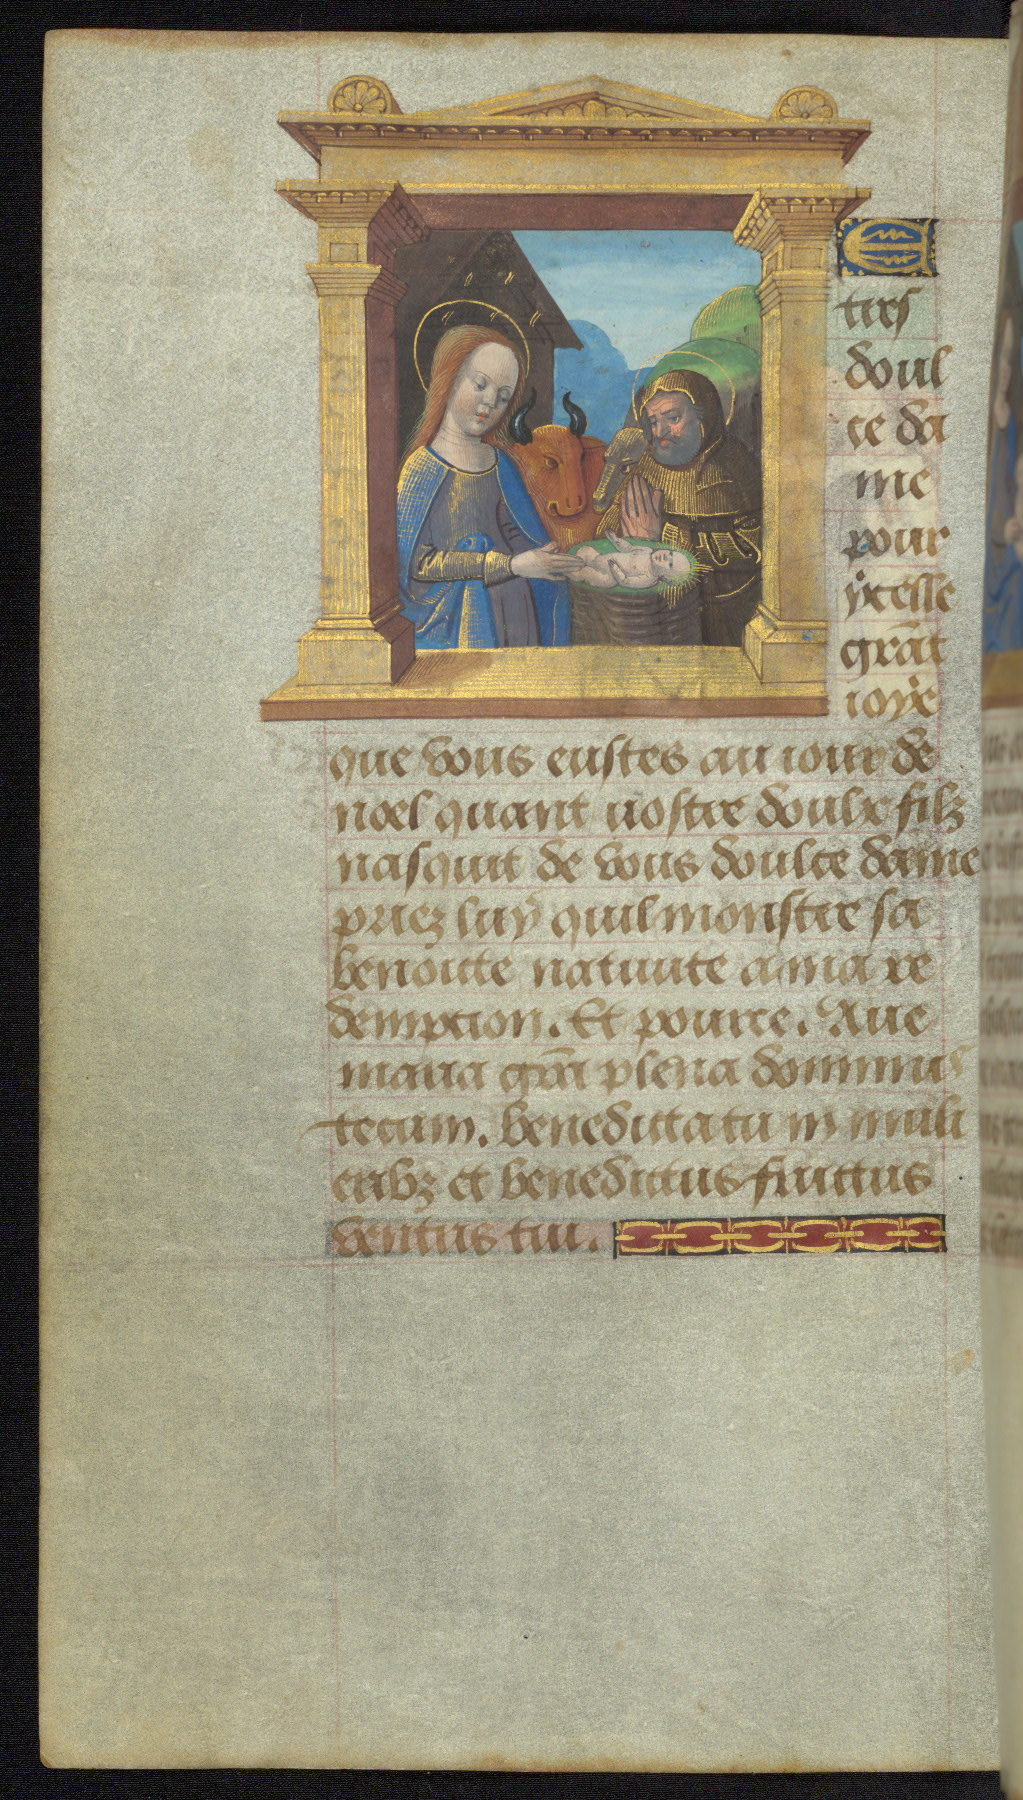 E
tres
doul
ce da
me
pour
ycelle
grāt
ioye
que vous eustes au iour de
noel quant uostre doulx filz
nasquit de vous doulce dame
priez luy quil monstre sa
benoitte natiuite a ma re
demption. Et pource. Aue
maria grā plena dominus
tecum. benedicta tu in muli
eribꝫ et benedictus fructus
ventris tui.